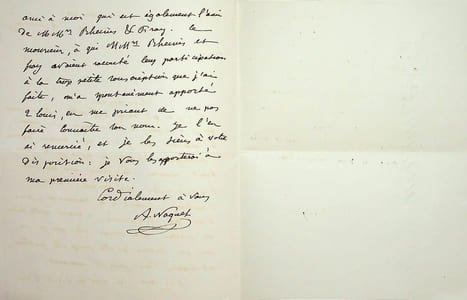 ami à moi qui est également l'ami
de MMrs Rheims & Piray. Ce
monsieur, à qui MMrs Rheims et
avaient raconté leur participation
à la trop petite souscription que j'ai
faite, m'a spontanément apporté
2 louis, en me priant de ne pas
faire connaître son nom. Je l'en
ai remercié, et je les tiens à votre
disposition : je vous les apporterai à
ma première visite.
Cordialement à vous
A. Naquet